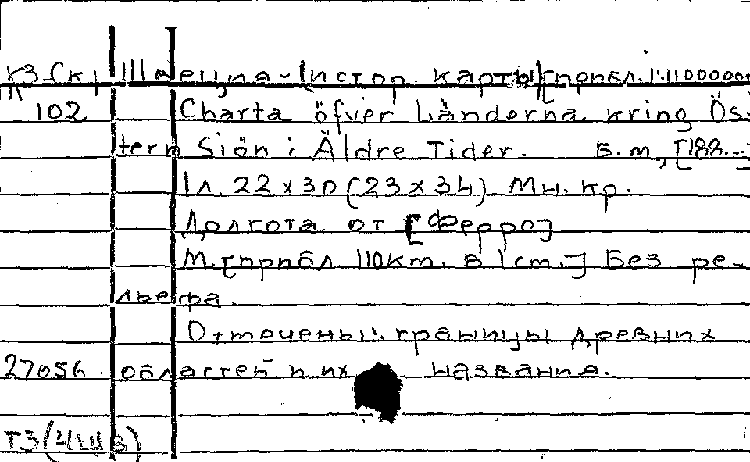 К3 (ск) Швеция - Истор. карты [прибл. 1:11000000
102 Charta öfver Länderna kring Ös-
tern Siön i Äldre Tider. б.м., [188...]
1 л. 22 x 30 (23 x 34) Мн. кр.
Долгота от [Ферро]
М. [прибл 110km. в 1cm.] Без ре-
льефа.
Отмечены границы древних
27056 областей и их названия.